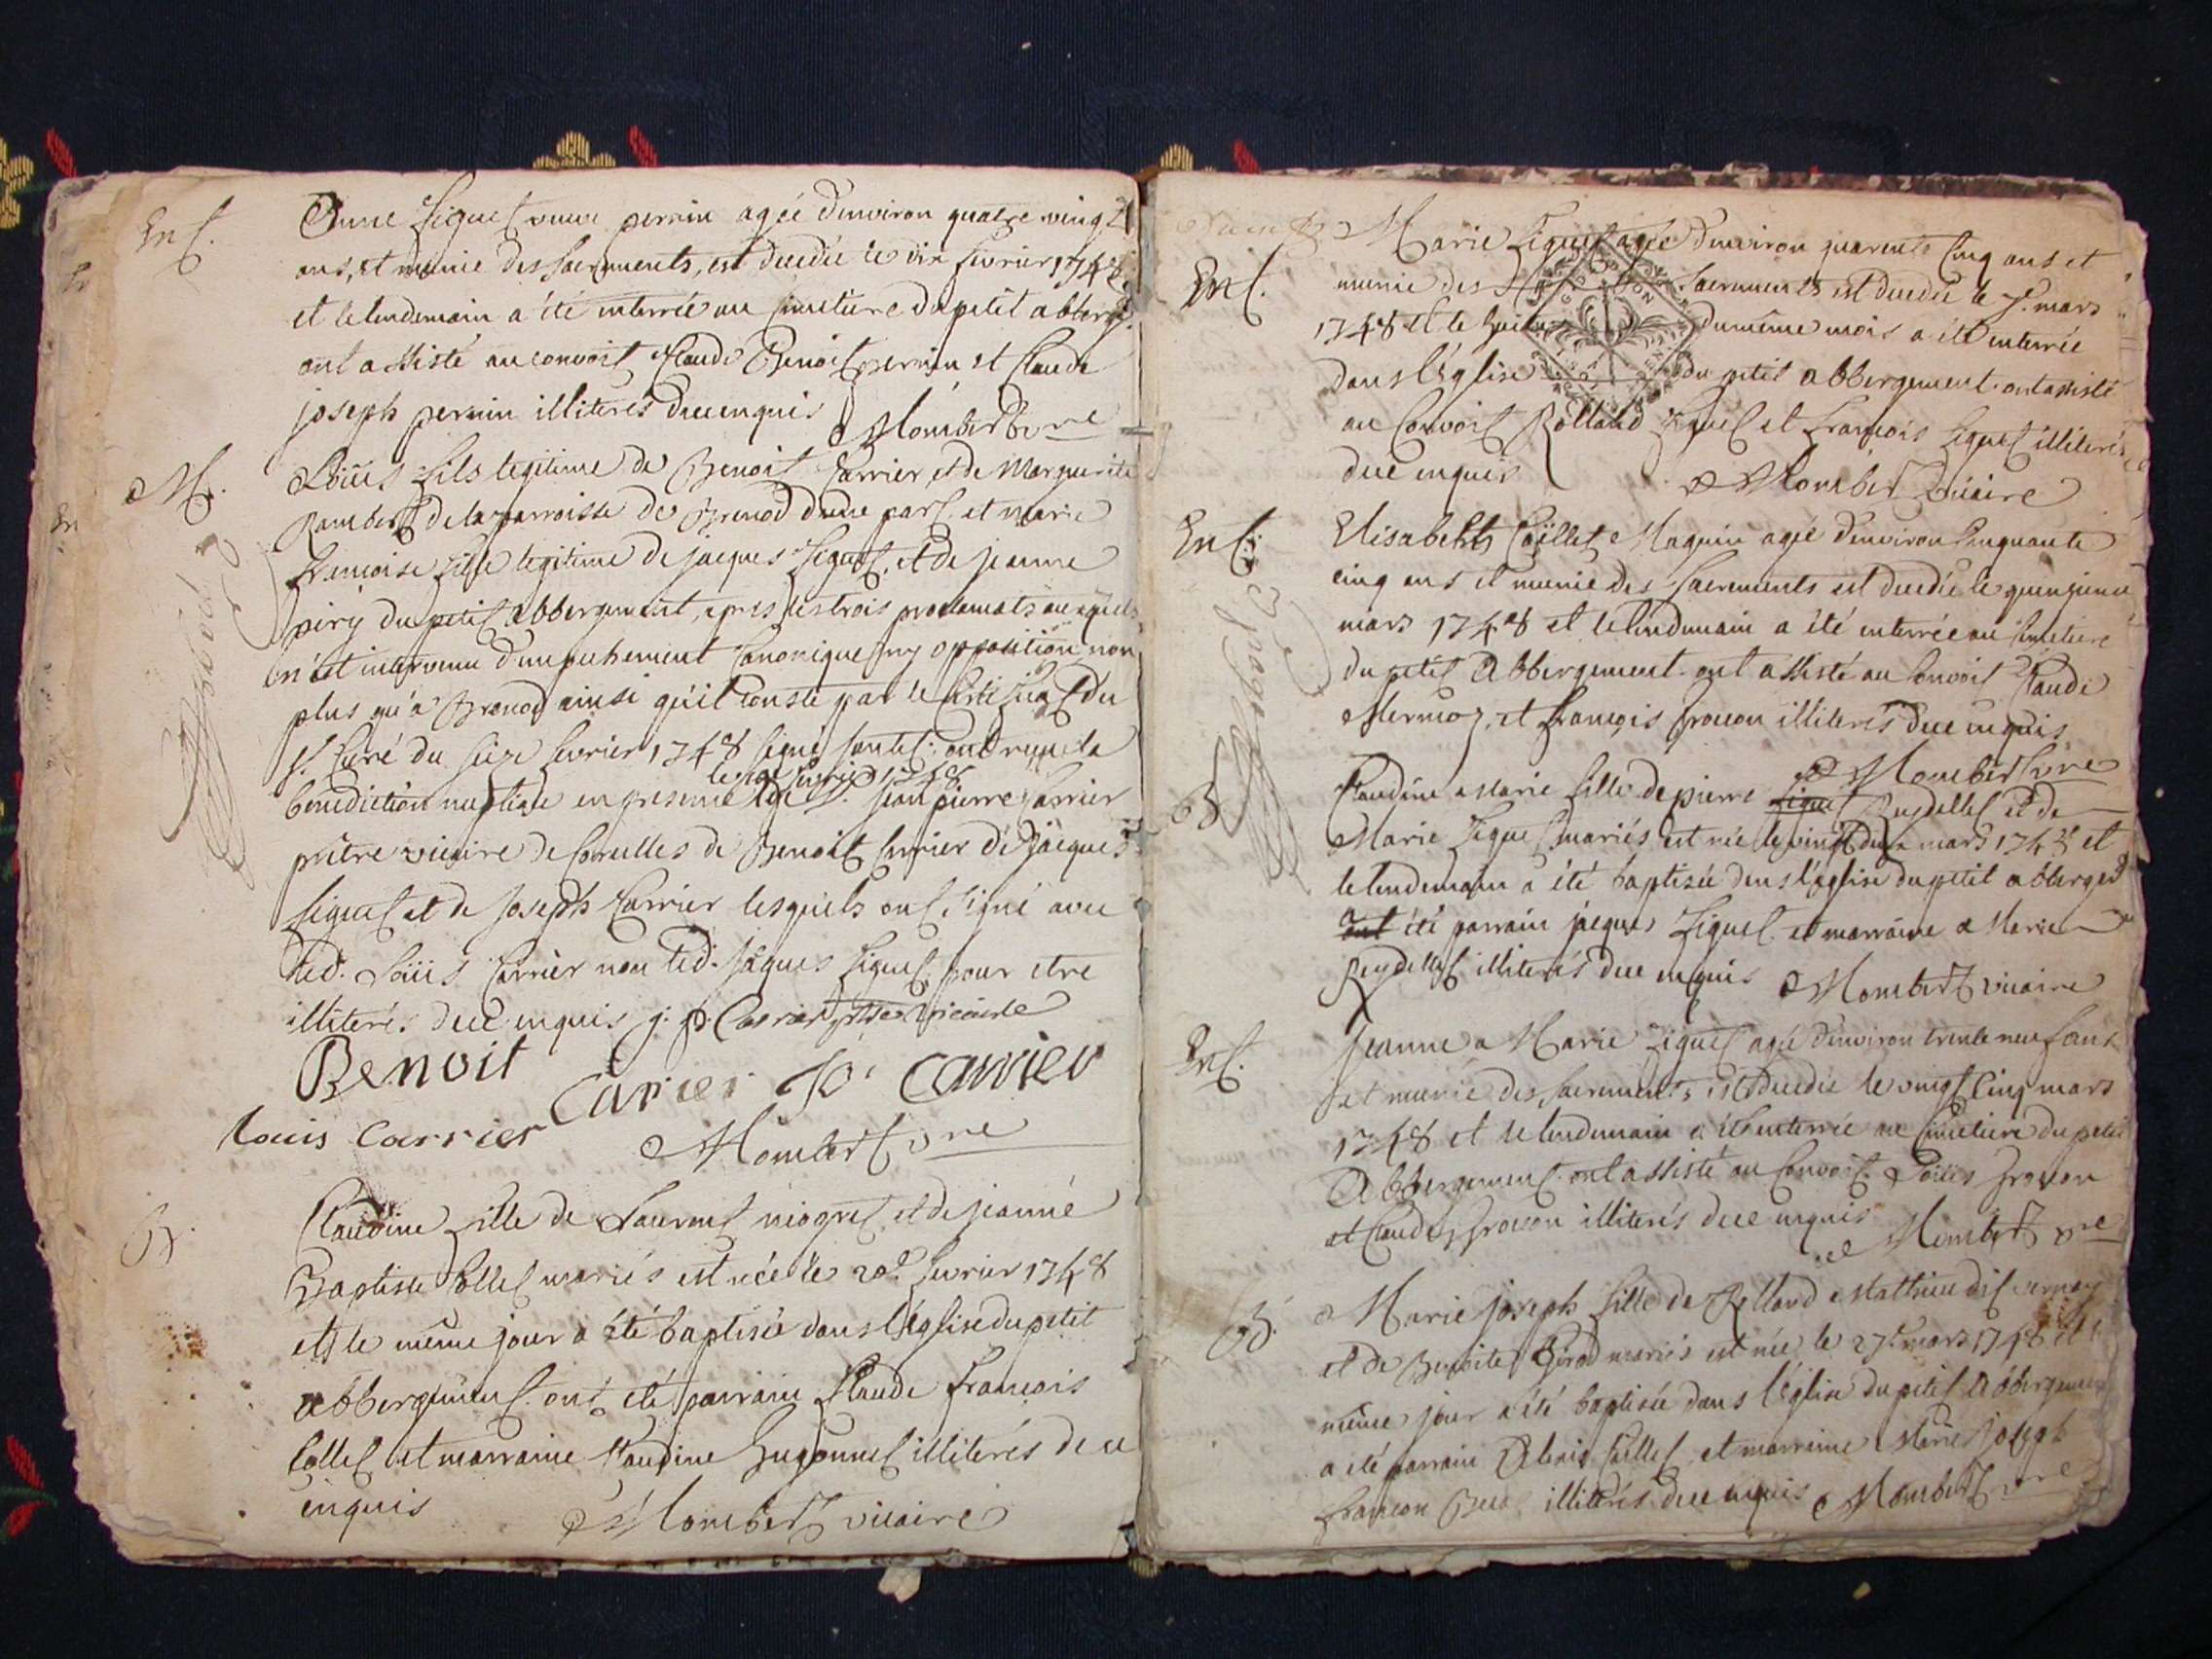 Ent.
Anne Liquet veuve perrin agée d'environ quatre vingt
ans, et munie des sacrements, est decedée le dix fevrier 1748
et le lendemain a été enterrée au cimetiere du petit abberg
ont assisté au convoit Claude Benoit perrin et Claude
joseph perrin illiterés de ce enquis
Mombert vre
M.
Loüis fils legitime de Benoit Carrier et de Marguerite
Rambert de la parroisse de Brenod d'une part et marie
francoise fille legitime de jacques Liquet, et de jeanne
du petit abbergement, apres les trois proclamats auxquels
n'est intervenu d'empechement canonique ny opposition non
plus qu'a Brenod ainsi qu'il conste par le certificat du
sr. Curé du seize fevrier 1748 signé ont recu la
fevrier 1748
benediction nuptiale en presence de Sr. jean pierre Carrier
prêtre vicaire de Corcelles de Benoit Carrier de jacques
Liquet et de joseph Carrier lesquels ont signé avec
led. Loüis Carrier non led. jâques Liquet pour etre
illiterés de ce enquis j. p. Carrier ptre vicaire
Benoit Carier Jo Carrier
louis Carrier
Mombert vre
B.
Claudine fille de Laurent niogret et de jeanne
Baptiste Collet mariés est née le 20e. fevrier 1748
et le même jour a été baptisée dans l'église du petit
abbergement. ont été parrain Claude francois
Collet et marraine Claudine Hugonnet illiterés de ce
enquis
Mombert vicaire
Marie Liquet agée d'environ quarente cinq ans et
Ent.
munie des sacrements est decedée le 7e. mars
1748 et le huit du même mois a été enterrée
dans l'église du petit abbergement. ont assisté
au Convoit Rolland Liquet et francois Liquet illiterés
de ce enquis
Mombert vicaire
Ent.
Elisabeth Caillet Maquin agée d'environ cinquante
cinq ans et munie des sacrements est decedée le quinzieme
mars 1748 et le lendemain a été enterrée au cimetiere
du petit abbergement. ont assisté au convoit Claude
Mermoz, et francois froson illiterés de ce enquis
Mombert vre
B
Claudine Marie fille de pierre Liquet Reydellet et de
Marie Liquet mariés est née le vingt deux mars 1748 et
le lendemain a été baptisée dans l'église du petit abbergent
ont été parrain jacques Liquet et marraine Marie
Reydellet illiterés de ce enquis Mombert vicaire
Ent.
Jeanne Marie Liquet agée d'environ trente neuf ans
et munie des sacrements est decedée le vingt cinq mars
1748 et le lendemain a été enterrée au cimetiere du petit
Abbergement. ont assisté au Convoit Loüis froson
et Claude froson illiterés de ce enquis
Mombert vre
B.
Marie joseph fille de Rolland Matthieu dit
et de Benoite Girod mariés est née le 27e. mars 1748 et
même jour a été baptisée dans l'église du petit Abbergement
a été parrain Alexis Caillet et marraine Marie joseph
illiterés de ce enquis Mombert vre